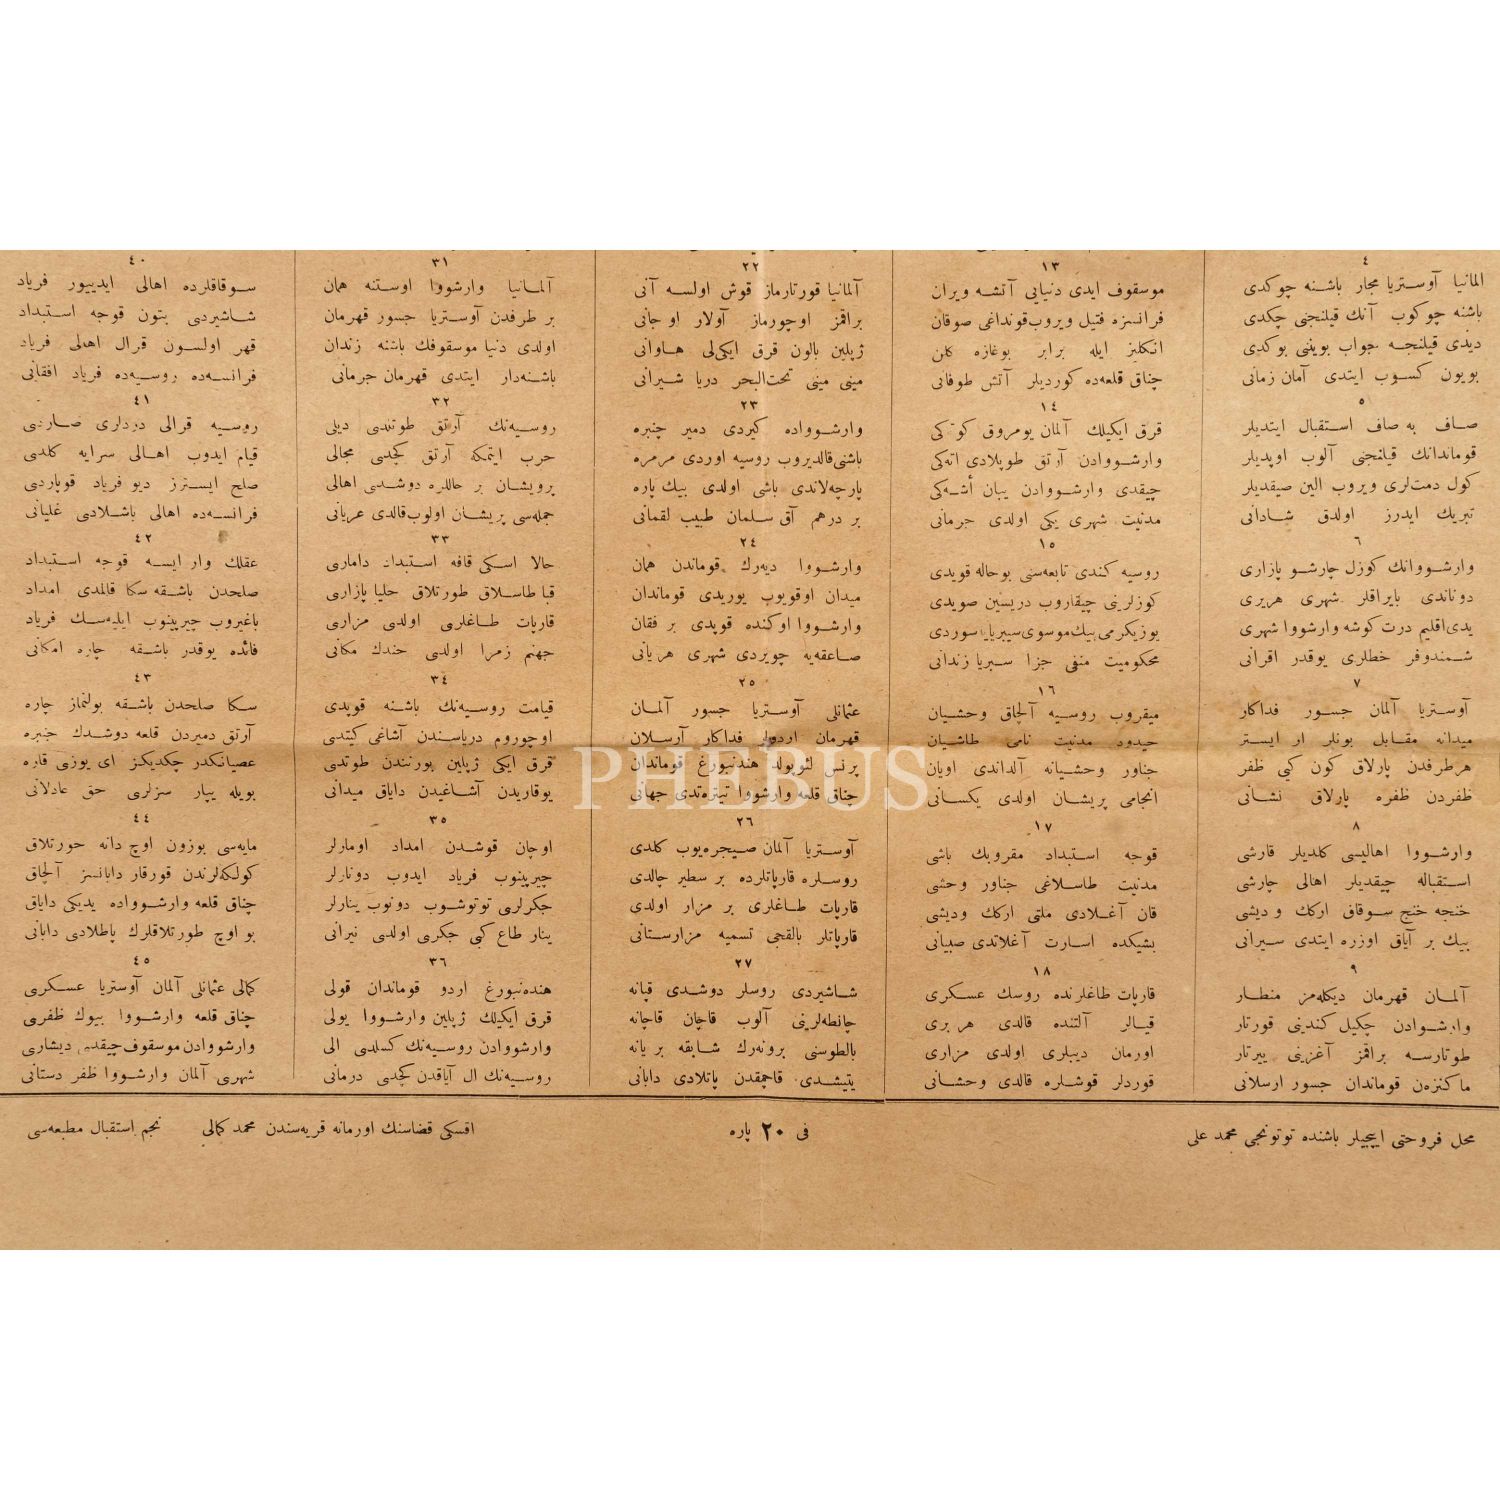 ٤
المانیا آوستریا مجار باشنه چوكدی
باشنه چوكوب آنك قیلنجنی چكدی
دیدی قیلنجه جواب بویننی بوكدی
بویون كسوب ایتدی آمان زمانی
٥
صاف به صاف استقبال ایتدیلر
قوماندانك قیلنجنی آلوب اوپدیلر
كول دمت‌لری ویروب الین صیقدیلر
تبریك ایدرز اولدق شادانی
٦
وارشووانك كوزل چارشو پازاری
دوناندی بایراقلر شهری هریری
یدی اقلیم درت كوشه وارشووا شهری
شمندوفر خطلری یوقدر اقرانی
٧
آوستریا آلمان جسور فداكار
میدانه مقابل بونلر ار ایستر
هرطرفدن پارلاق كون كبی ظفر
ظفردن ظفره پارلاق نشانی
٨
وارشووا اهالیسی كلدیلر قارشی
استقباله چیقدیلر اهالی چارشی
خنجه خنج سوقاق اركك ودیشی
بیك بر آیاق اوزره ایتدی سیرانی
٩
آلمان قهرمان دیكله‌مز منطار
وارشوادن چكیل كندینی قورتار
طوتارسه براقمز آغزینی ییرتار
ماكنزه‌ن قوماندان جسور ارسلانی
١٣
موسقوف ایدی دنیایی آتشه ویران
فرانسزه فتیل ویروب قونداغی صوقان
انكلیز ایله برابر بوغازه كلن
چناق قلعه‌ده كوردیلر آتش طوفانی
١٤
قرق ایكیلك آلمان یومروق كوتكی
وارشووادن آرتق طوپلادی اتكی
چیقدی وارشووادن یبان أشه‌كی
مدنیت شهری یكی اولدی جرمانی
١٥
روسیه كندی تابعه‌سنی بوحاله قویدی
كوزلرینی چیقاروب دریسین صویدی
یوزیكرمی بیك موسوی سیبریایه سوردی
محكومیت منفی جزا سبریا زندانی
١٦
میقروب روسیه آلچاق وحشیان
حیدود مدنیت نامی طاشیان
جناور وحشیانه آلداندی اویان
انجامی پریشان اولدی یكسانی
١٧
قوجه استبداد مقروبك باشی
مدنیت طاسلاغی جناور وحشی
قان آغلادی ملتی اركك ودیشی
بشیكده اسارت آغلاتدی صبیانی
١٨
قارپات طاغلرنده روسك عسكری
قیالر آلتنده قالدی هربری
اورمان دیبلری اولدی مزاری
قوردلر قوشلره قالدی وحشانی
٢٢
آلمانیا قورتارماز قوش اولسه آنی
براقمز اوچورماز آولار اوجانی
ژپلین بالون قرق ایكی‌لی هاوانی
مینی مینی تحت‌البحر دریا شیرانی
٢٣
وارشوواده كیردی دمیر چنبره
باشنی قالدیروب روسیه اوردی مرمره
پارچه‌لاندی باشی اولدی بیك پاره
بر درهم آق سلمان طبیب لقمانی
٢٤
وارشووا دیه‌رك قوماندن همان
میدان اوقویوب یوریدی قوماندان
وارشووا اوكنده قوپدی بر فغان
صاعقه‌یه چویردی شهری هریانی
٢٥
عثمانلی آوستریا جسور آلمان
قهرمان اردولر فداكار آرسلان
پرنس لئوپولد هندنبورغ قوماندان
چناق قلعه وارشووا تیتره‌تدی جهانی
٢٦
آوستریا آلمان صیجره‌یوب كلدی
روسلره قارپاتلرده بر سطیر چالدی
قارپات طاغلری بر مزار اولدی
قارپاتلر بالقجی تسمیه مزارستانی
٢٧
شاشیردی روسلر دوشدی قپانه
چانطه‌لرینی آلوب قاچان قاچانه
بالطوسنی برونه‌رك شابقه بریانه
یتیشدی قاچمقدن پاتلادی دابانی
٣١
آلمانیا وارشووا اوستنه همان
برطرفدن آوستریا جسور قهرمان
اولدی دنیا موسقوفك باشنه زندان
باشنه‌دار ایتدی قهرمان جرمانی
٣٢
روسیه‌نك آرتق طوتلدی دیلی
حرب ایتمكه آرتق كچدی مجالی
پرویشان بر حالده دوشدی اهالی
جمله‌سی پریشان اولوب قالدی عریانی
٣٣
حالا اسكی قافه استبداد داماری
قبا طاسلاق طورتلاق حلیا پازاری
قارپات طاغلری اولدی مزاری
جهنم زمرا اولدی خندك مكانی
٣٤
قیامت روسیه‌نك باشنه قوپدی
اوچوروم دریاسندن آشاغی كیتدی
قرق ایكی ژپلین بورنندن طوتدی
یوقاریدن آشاغیدن دایاق میدانی
٣٥
اوچان قوشدن امداد اومارلر
چیرپینوب فریاد ایدوب دونارلر
جكرلری توتوشوب دونوب ینارلر
ینار طاغ كبی جكری اولدی نیرانی
٣٦
هنده‌نبورغ اردو قوماندان قولی
قرق ایكیلك ژپلین وارشووا یولی
وارشووادن روسیه‌نك كسلدی الی
روسیه‌نك ال آیاقدن كچدی درمانی
٤٠
سوقاقلرده اهالی ایدییور فریاد
شاشیردی بتون قوجه استبداد
قهر اولسون قرال اهالی فریاد
فرانسه‌ده روسیه‌ده فریاد افقانی
٤١
روسیه قرالی دردلری صاردی
قیام ایدوب اهالی سرایه كلدی
صلح ایسترز دیو فریاد قوپاردی
فرانسه‌ده اهالی باشلادی غلیانی
٤٢
عقلك وار ایسه قوجه استبداد
صلحدن باشقه سكا قالمدی امداد
باغیروب چیرپینوب ایلیه‌سك فریاد
فائده یوقدر باشقه چاره امكانی
٤٣
سكا صلحدن باشقه بولنماز چاره
آرتق دمیردن قلعه دوشدك چنبره
عصیانكدر چكدیكز ای یوزی قاره
بویله یپار سزلری حق عادلانی
٤٤
مایه‌سی بوزون اوچ دانه حورتلاق
كولكه‌لرندن قورقار دابانسز آلچاق
چناق قلعه وارشوواده یدیكی دایاق
بو اوچ طورتلاقلرك پاطلادی دابانی
٤٥
كمالی عثمانلی آلمان آوستریا عسكری
چناق قلعه وارشووا بیوك ظفری
وارشووادن موسقوف چیقدی دیشاری
شهری آلمان وارشووا ظفر دستانی
محل فروختی ایپجیلر باشنده توتونجی محمد علی
فی ٢٠ پاره
اقسكی قضاسنك اورمانه قریه‌سندن محمد كمالی
نجم استقبال مطبعه‌سی
PHEBUS